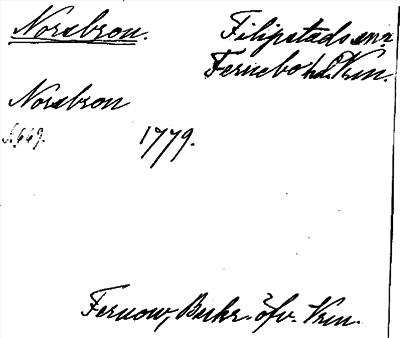 Norsbron. Filipstads
Fernebo hd. Vrm.
Norsbron
S. 669. 1779.
Fernow, Beskr. öfv. Vrm.